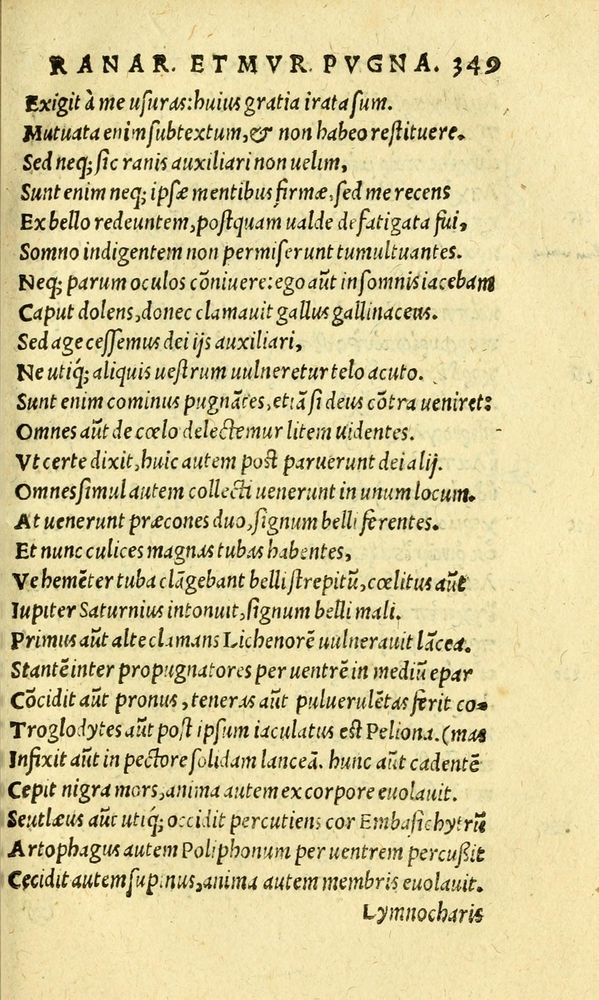 RANAR. ET MVR. PVGNA. 349
Exigit à me usuras: huius gratia irata sum.
Mutuata enim subtextum, & non habeo restituere.
Sed neq; sic ranis auxiliari non uelim,
Sunt enim neq; ipsæ mentibus firmæ, sed me recens
Ex bello redeuntem, postquam ualde defatigata fui,
Somno indigentem non permiserunt tumultuantes.
Neq; parum oculos cõniuere: ego aũt insomnis iacebam
Caput dolens, donec clamauit gallus gallinaceus.
Sed age cessemus dei ijs auxiliari,
Ne utiq́; aliquis uestrum uulneretur telo acuto.
Sunt enim cominus pugnãtes, etiã si deus cõtra ueniret:
Omnes aũt de cœlo delectemur litem uidentes.
Vt certe dixit, huic autem post paruerunt dei alij.
Omnes simul autem collecti uenerunt in unum locum.
At uenerunt præcones duo, signum belli ferentes.
Et nunc culices magnas tubas habentes,
Vehemẽter tuba clãgebant belli strepitũ, cœlitus aũt
Iupiter Saturnius intonuit, signum belli mali.
Primus aũt alte clamans Lichenorẽ uulnerauit lãcea.
Stantẽ inter propugnatores per uentrẽ in mediũ epar
Cõcidit aũt pronus, teneras aũt puluerulẽtas ferit co-
Troglodytes aũt post ipsum iaculatus est Peliona. (mas
Infixit aũt in pectore solidam lanceã. hunc aũt cadentẽ
Cepit nigra mors, anima autem ex corpore euolauit.
Seutlæus aũt utiq́; occidit percutiens cor Embasichytrũ
Artophagus autem Poliphonum per uentrem percußit
Cecidit autem supinus, anima autem membris euolauit.
Lymnocharis